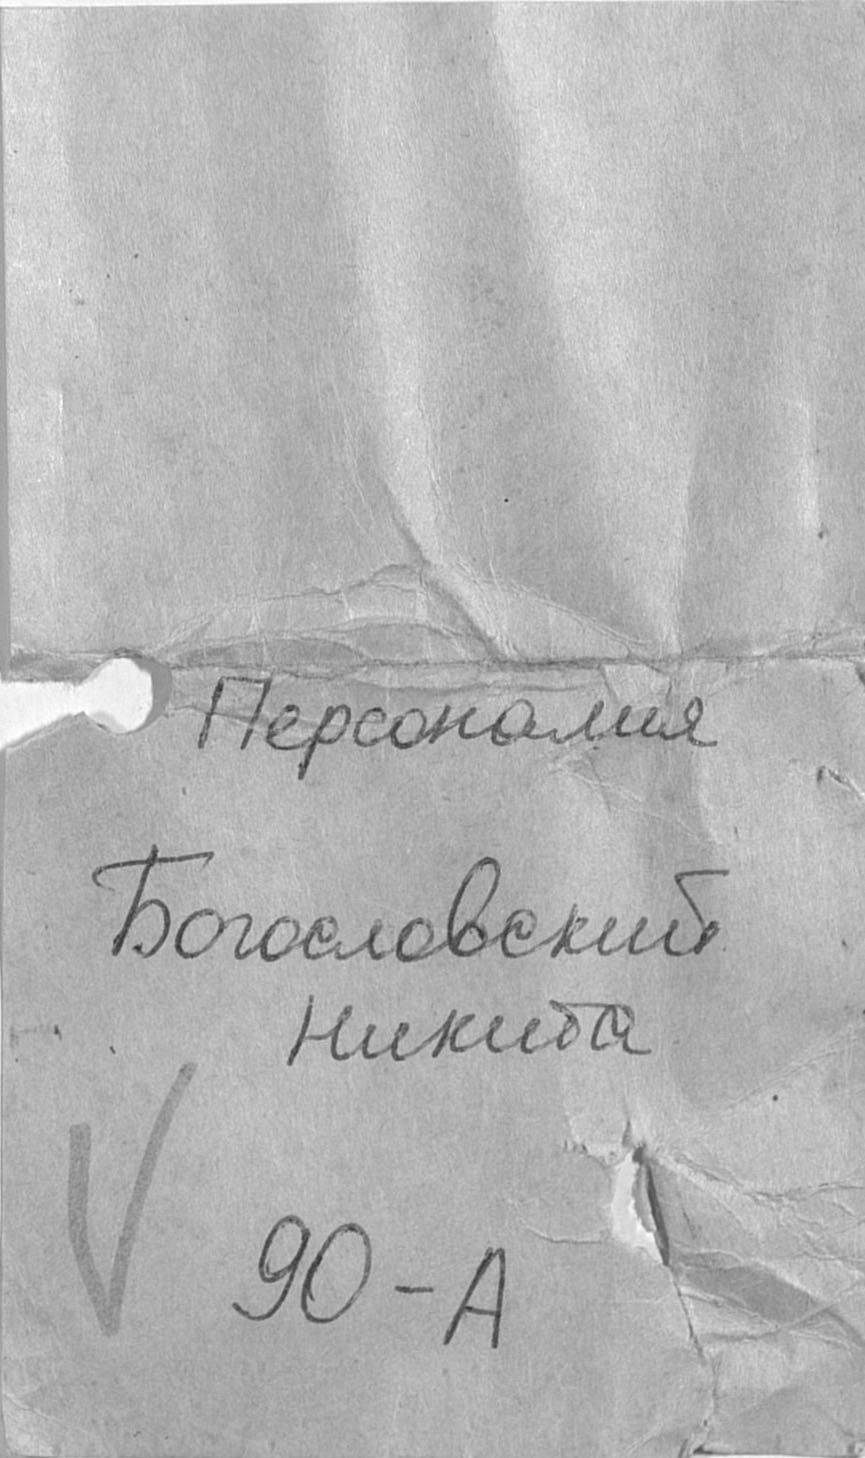 Персоналия
Богословский
Никита
90-А